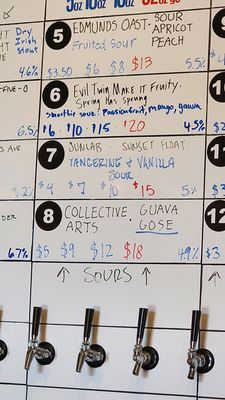 5oz 10oz 16oz 32oz
Dry
Irish
Stout
4.6%
5 EDMUNDS OAST. SOUR
APRICOT
PEACH
Fruited Sour
$3.50 $6 $8 $13 5.5%
FIVE-O
6.5%
6 Evil Twin Make it Fruity.
Spring Has Sprung
Smoothie sour: Passionfruit, mango, guava
$6 $10 $15 $20 4.5%
AVE
8.2%
7 SUNLAB SUNSET FLOAT
TANGERINE & VANILLA
SOUR
$4 $7 $10 $15 5%
6.7%
8 COLLECTIVE GUAVA
ARTS GOSE
$5 $9 $12 $18 4.9%
12
$3
↑ SOURS ↑